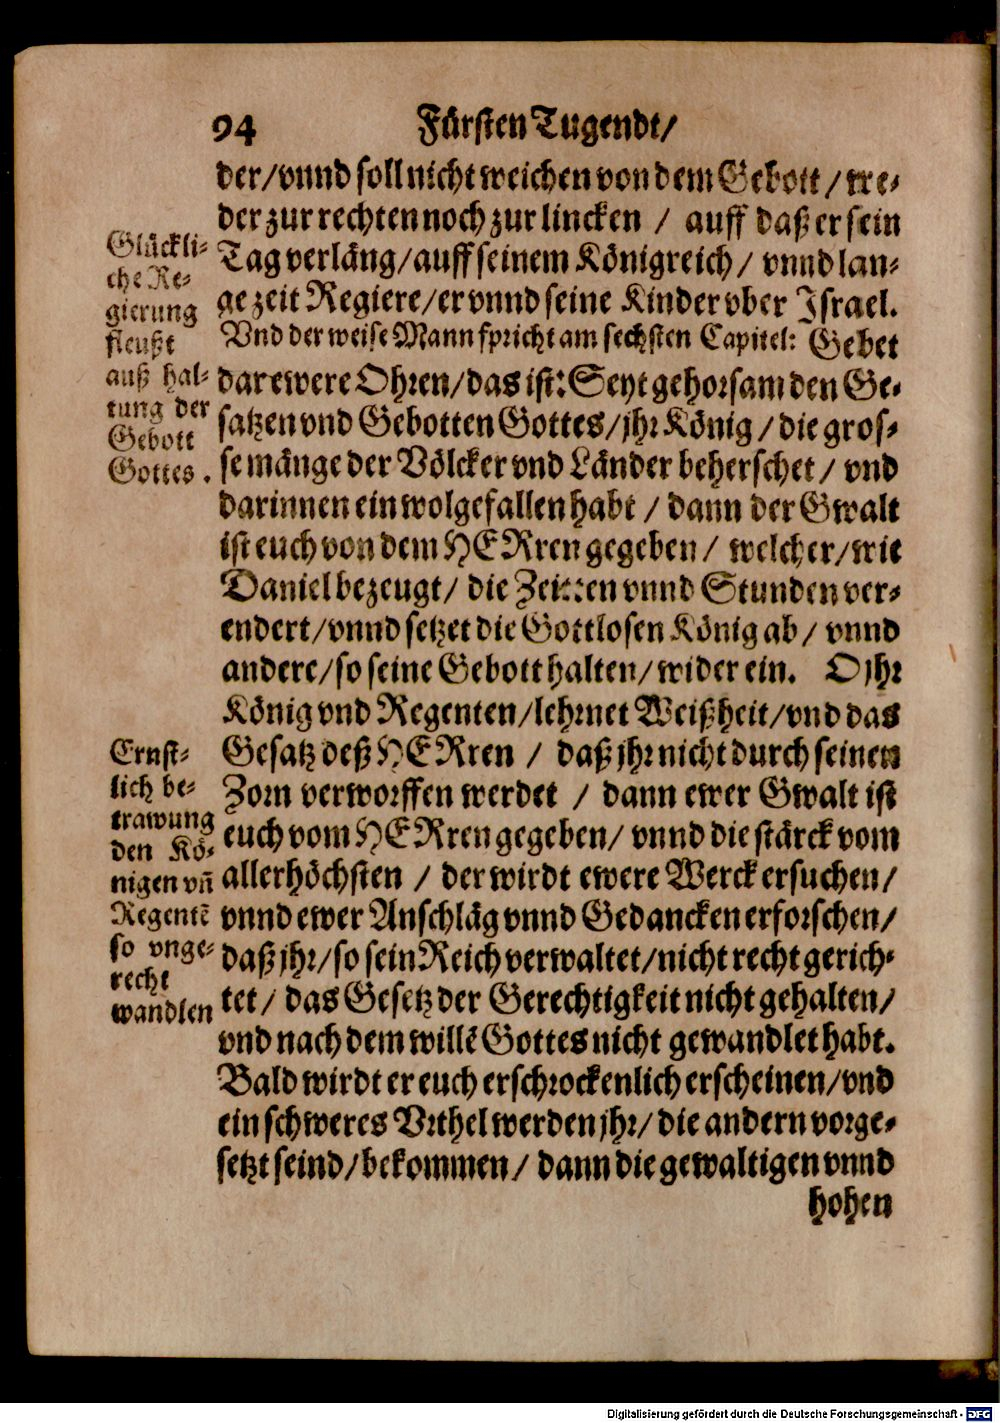 94 Fürsten Tugendt/
der/vnnd soll nicht weichen von dem Gebott/we-
der zur rechten noch zur lincken / auff daß er sein
Tag verläng/auff seinem Königreich/ vnnd lan-
ge zeit Regiere/er vnnd seine Kinder vber Israel.
Vnd der weise Mann spricht am sechsten Capitel: Gebet
dar ewere Ohren/das ist: Seyt gehorsam den Ge-
satzen vnd Gebotten Gottes/jhr König/die gros-
se mänge der Völcker vnd Länder beherschet/ vnd
darinnen ein wolgefallen habt / dann der Gwalt
ist euch von dem HERren gegeben/ welcher/wie
Daniel bezeugt/ die Zeitten vnnd Stunden ver-
endert/vnnd setzet die Gottlosen König ab/ vnnd
andere/so seine Gebott halten/wider ein. O jhr
König vnd Regenten/lehrnet Weißheit/vnd das
Gesatz deß HERren / daß jhr nicht durch seinen
Zorn verworffen werdet / dann ewer Gwalt ist
euch vom HERren gegeben/ vnnd die stärck vom
allerhöchsten / der wirdt ewere Werck ersuchen/
vnnd ewer Anschläg vnnd Gedancken erforschen/
daß jhr/so sein Reich verwaltet/nicht recht gerich-
tet/ das Gesetz der Gerechtigkeit nicht gehalten/
vnd nach dem willẽ Gottes nicht gewandlet habt.
Bald wirdt er euch erschrockenlich erscheinen/vnd
ein schweres Vrthel werden jhr/die andern vorge-
setzt seind/bekommen/ dann die gewaltigen vnnd
hohen
Glückli-
che Re-
gierung
fleußt
auß hal-
tung der
Gebott
Gottes.
Ernst-
lich be-
trawung
den Kö-
nigen vñ
Regentẽ
so vnge-
recht
wandlen
Digitalisierung gefördert durch die Deutsche Forschungsgemeinschaft - DFG